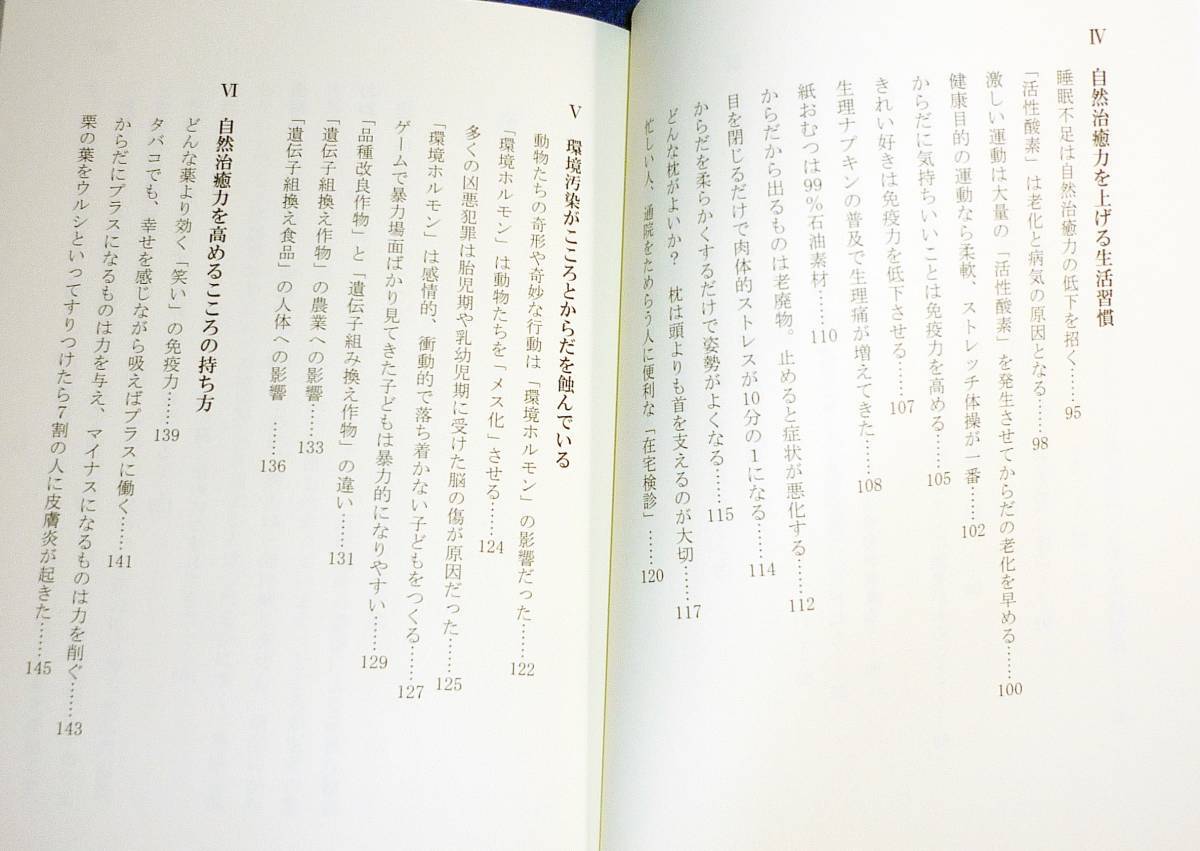 Ⅳ 自然治癒力を上げる生活習慣
睡眠不足は自然治癒力の低下を招く……95
「活性酸素」は老化と病気の原因となる……98
激しい運動は大量の「活性酸素」を発生させてからだの老化を早める……100
健康目的の運動なら柔軟、ストレッチ体操が一番……102
からだに気持ちいいことは免疫力を高める……105
きれい好きは免疫力を低下させる……107
生理ナプキンの普及で生理痛が増えてきた……108
紙おむつは99％石油素材……110
からだから出るものは老廃物。止めると症状が悪化する……112
目を閉じるだけで肉体的ストレスが10分の1になる……114
からだを柔らかくするだけで姿勢がよくなる……115
どんな枕がよいか？ 枕は頭よりも首を支えるのが大切……117
忙しい人、通院をためらう人に便利な「在宅検診」……120
Ⅴ 環境汚染がこころとからだを蝕んでいる
動物たちの奇形や奇妙な行動は「環境ホルモン」の影響だった……122
「環境ホルモン」は動物たちを「メス化」させる……124
多くの凶悪犯罪は胎児期や乳幼児期に受けた脳の傷が原因だった……125
「環境ホルモン」は感情的、衝動的で落ち着かない子どもをつくる……127
ゲームで暴力場面ばかり見てきた子どもは暴力的になりやすい……129
「品種改良作物」と「遺伝子組み換え作物」の違い……131
「遺伝子組換え作物」の農業への影響……133
「遺伝子組換え食品」の人体への影響 ……136
Ⅵ 自然治癒力を高めるこころの持ち方
どんな薬より効く「笑い」の免疫力……139
タバコでも、幸せを感じながら吸えばプラスに働く……141
からだにプラスになるものは力を与え、マイナスになるものは力を削ぐ……143
栗の葉をウルシといってすりつけたら7割の人に皮膚炎が起きた……145